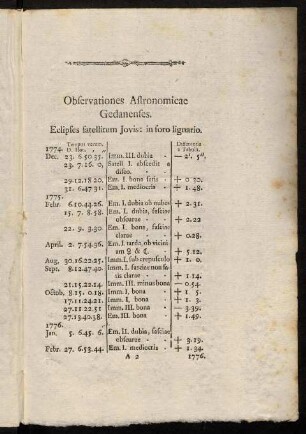 Obſervationes Aſtronomicae
Gedanenſes.
Eclipſes ſatellitum Jovis: in foro lignario.
1774. Tempus verum. Differentia
a Tabulis.
Dec. 23. 6.50.35. Imm. III. dubia - - 2'. 5".
23. 7.16. 0. Satell I. abſcedit a
diſco. -
29.12.18.20. Em. I. bona ſatis - + 0 50.
31. 6.47.31. Em. I. mediocris - + 1. 48.
1775.
Febr. 6.10.44.26. Em. I. dubia ob nubes + 2.31.
15. 7. 8.58. Em. I. dubia, faſciae
obſcurae - + 2.22
22. 9. 3.30. Em. I. bona, faſciae
clarae - + 0.28.
April. 2. 7.54.36. Em. I. tarda, ob vicini
am ☿ & ☾. + 5.12.
Aug. 30.16.22.25. Imm. I. ſub crepuſculo + 1. 0.
Sept. 8.12.47.40. Imm. I. faſciae non ſa-
tis clarae - + 1. 14.
25.15.22.14. Imm. III. minus bona — 0.54.
Octob. 8.15. 0.18. Imm. I. bona - + 1. 5.
17.11.24.21. Imm. I. bona - + 1. 3.
27.11 22.51 Imm. III. bona - — 3.39.
27.13.40.38. Em. III. bona - + 1.49.
1776.
Jan. 5. 6.45. 6. Em. II. dubia, faſciae
obſcurae - + 3.19.
Febr. 27. 6.53.44. Em. I. mediocris - + 1.34.
A 2 1776.